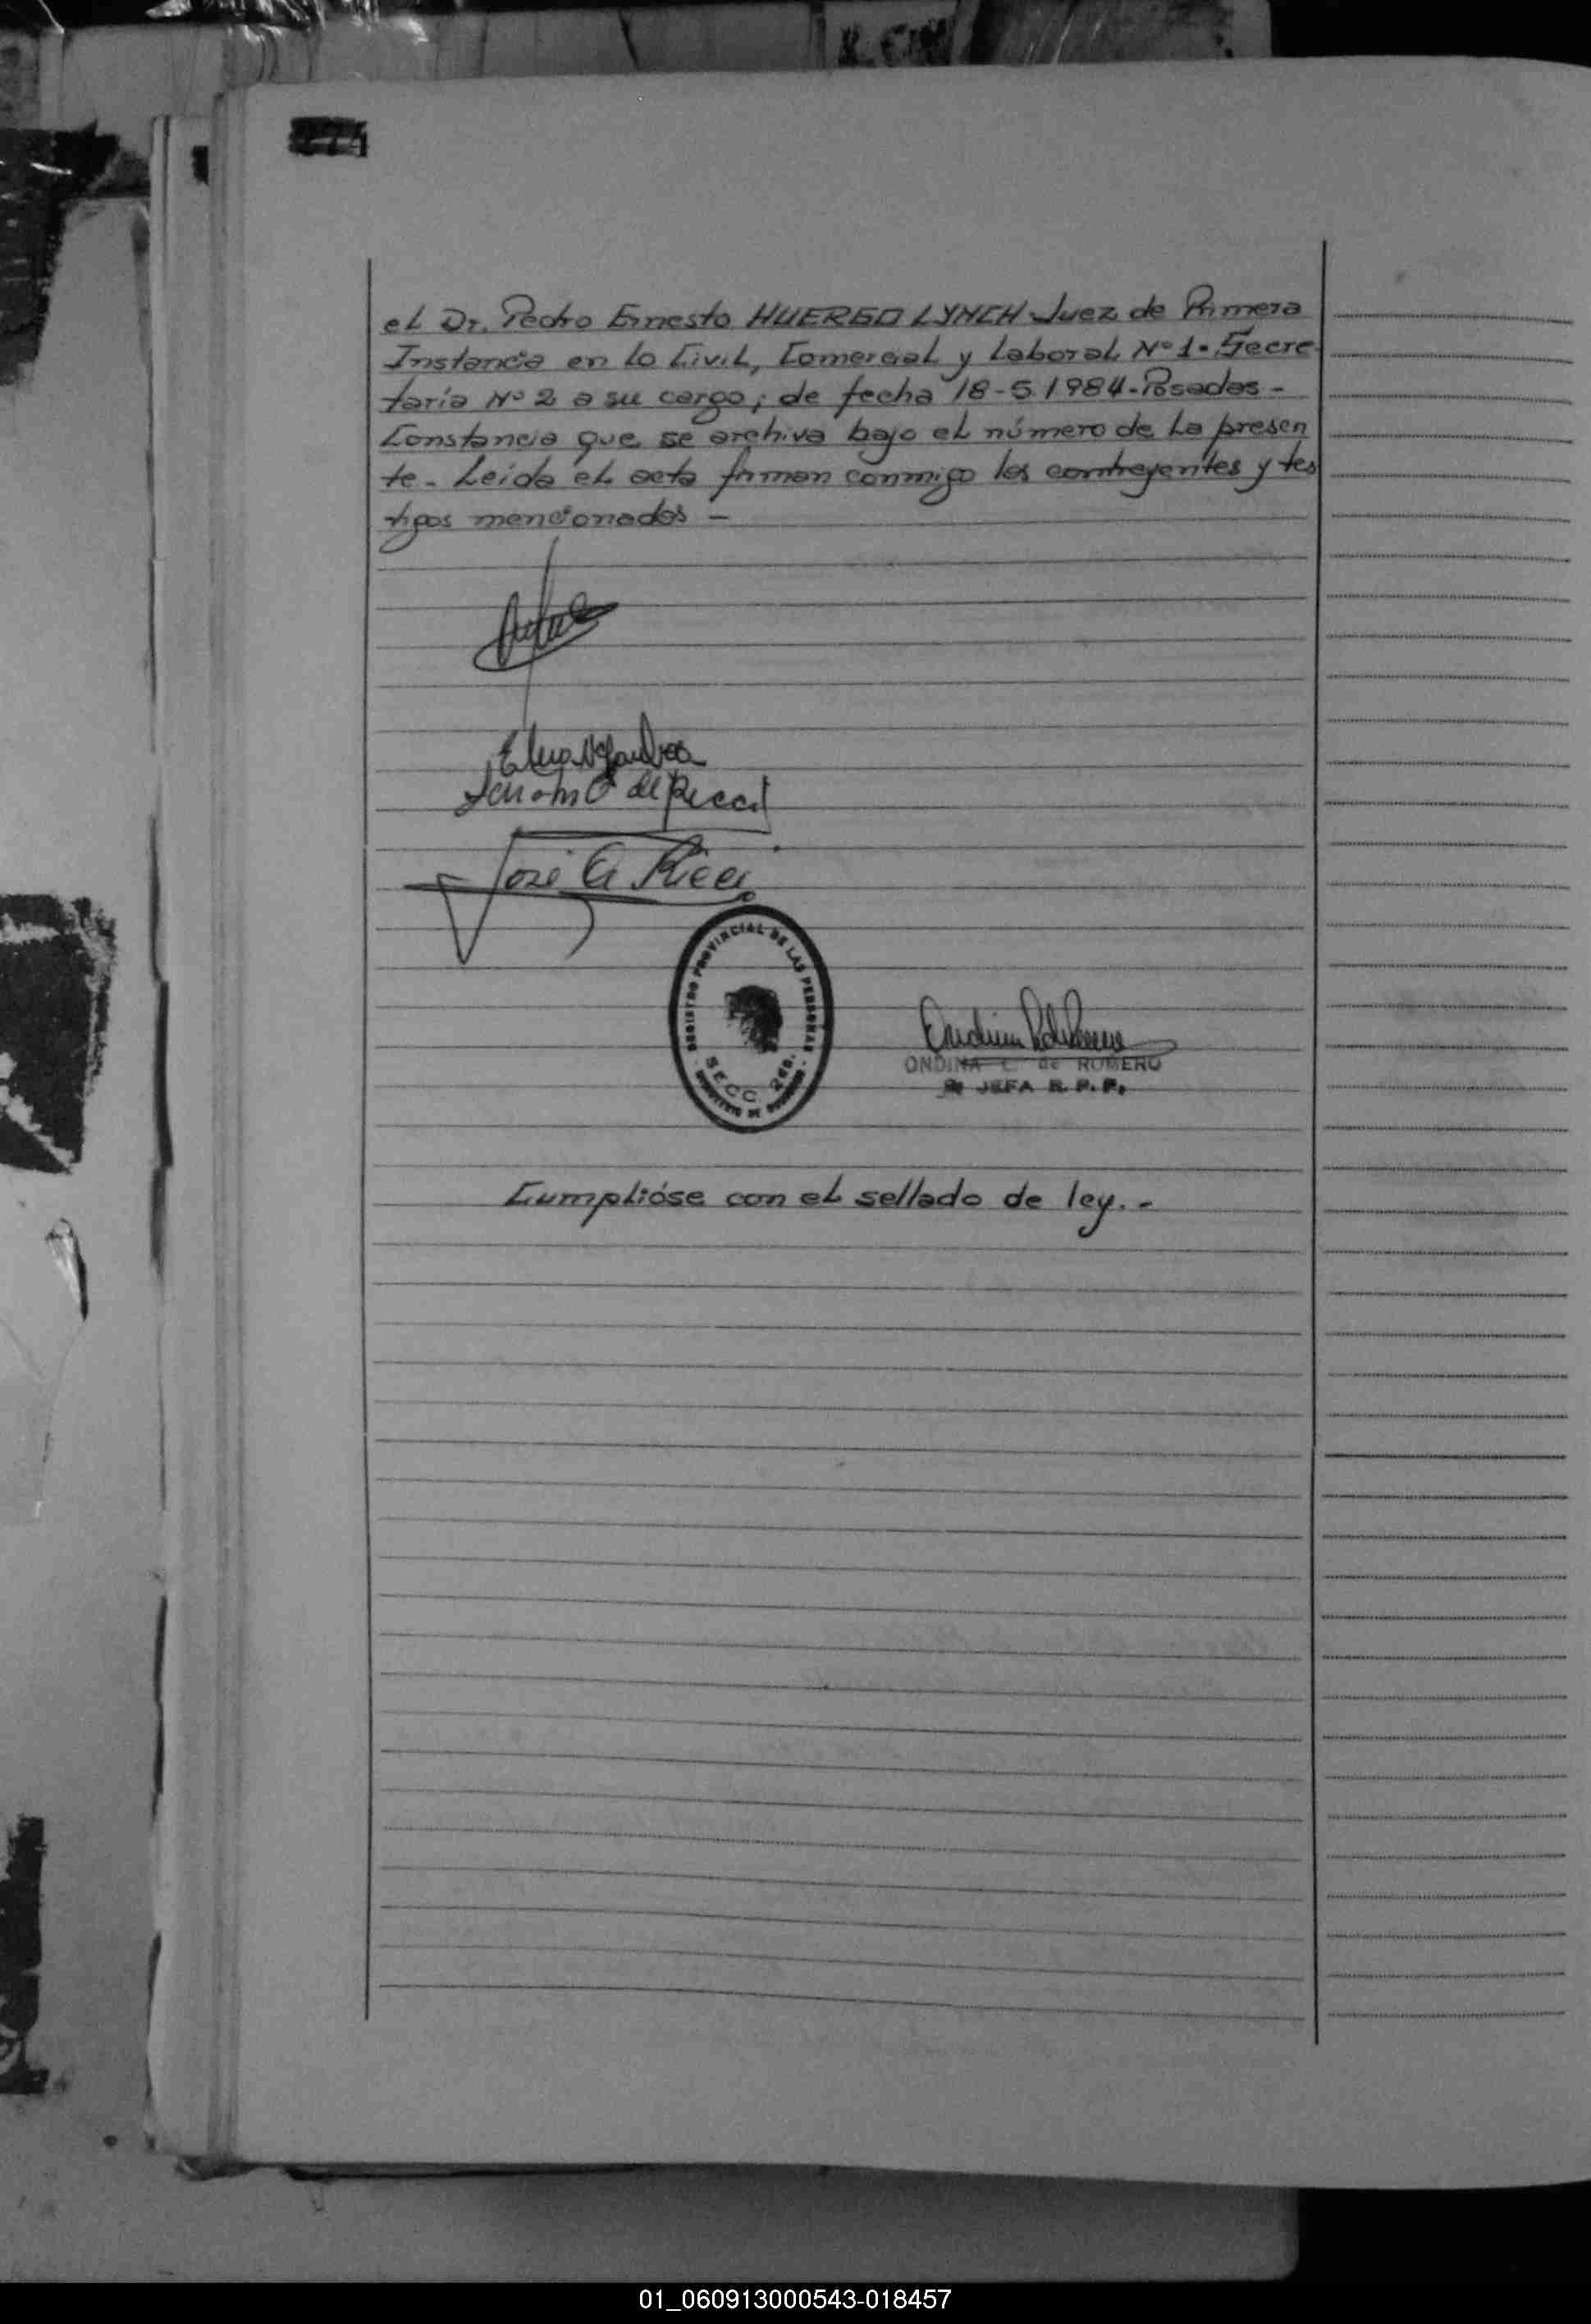 274
el Dr. Pedro Ernesto HUERGO LYNCH Juez de Primera
Instancia en lo Civil, Comercial y Laboral Nº 1 - Secre
taría Nº 2 a su cargo; de fecha 18-5-1984 - Posadas -
Constancia que se archiva bajo el número de la presen
te - Leída el acta firman conmigo los contrayentes y tes
tigos mencionados -
de Ricci
José A. Ricci
REGISTRO PROVINCIAL DE LAS PERSONAS
SECC. 2da.
MINISTERIO DE GOBIERNO
ONDINA C. de ROMERO
JEFA R. P. P.
Cumplióse con el sellado de ley. -
01_060913000543-018457